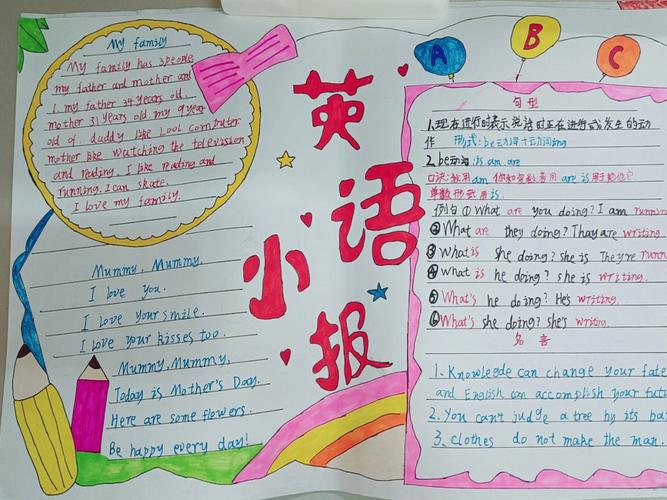 My family
My family has 3people
my father and mother and
I. my father 34 years old.
mother 31 years old. my 9year
old of. daddy like Lool computer
mother like watching the television
and reading. I like reading and
running. I can skate.
I love my family.
Mummy, Mummy,
I love you.
I love your smile.
I love your kisses too.
Mummy, Mummy,
Today is Mother's Day.
Here are some flowers.
Be happy every day!
英语
小报
A B C
句型
1.现在进行时表示说话时正在进行或发生的动
作 形式:be动词+动词ing
2.be动词:is.am.are
口诀:我用am 你和复数看用are is用于他她它
单数形式用is.
例句①What are you doing? I am running.
②What are they doing? Thay are writing.
③What is she doing? she is They're runn
④What is he doing? she is writing.
⑤What's he doing? He's writing.
⑥What's she doing? she's writing.
名言
1. Knowlegde can change your fate
and English can accomplish your futu
2. You can't judge a tree by its ba
3. clothes do not make the man.